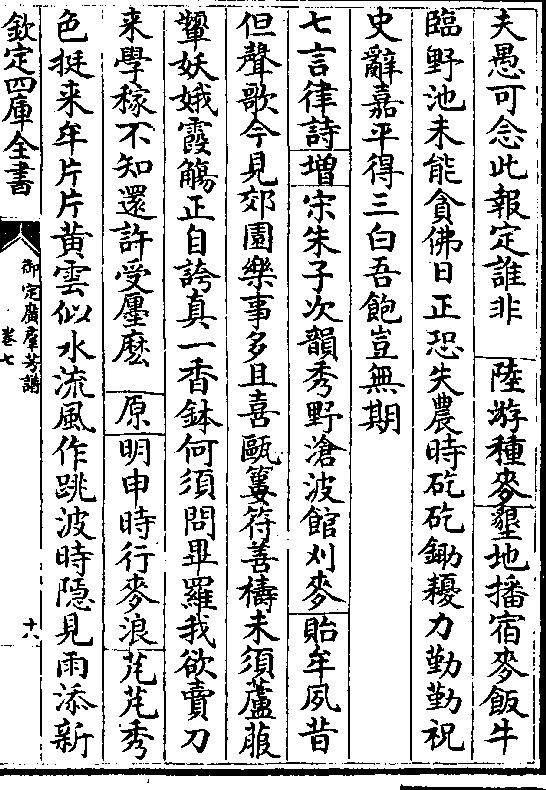 夫愚可念此報定誰非　陸游種麥墾地播宿麥飯牛
臨野池未能貪佛日正恐失農時矻矻鋤耰力勤勤祝
史辭嘉平得三白吾飽豈無期
七言律詩增宋朱子次韻秀野滄波館刈麥貽牟夙昔
但聲歌今見郊園樂事多且喜甌簍符善禱未須蘆菔
犨妖娥霞觴正自誇真一香鉢何須問畢羅我欲賣刀
来學稼不知還許受廛麽　原明申時行麥浪芃芃秀
色挺来牟片片黃雲似水流風作跳波時隱見雨添新
欽定四庫全書
御定廣羣芳譜
卷七
十六